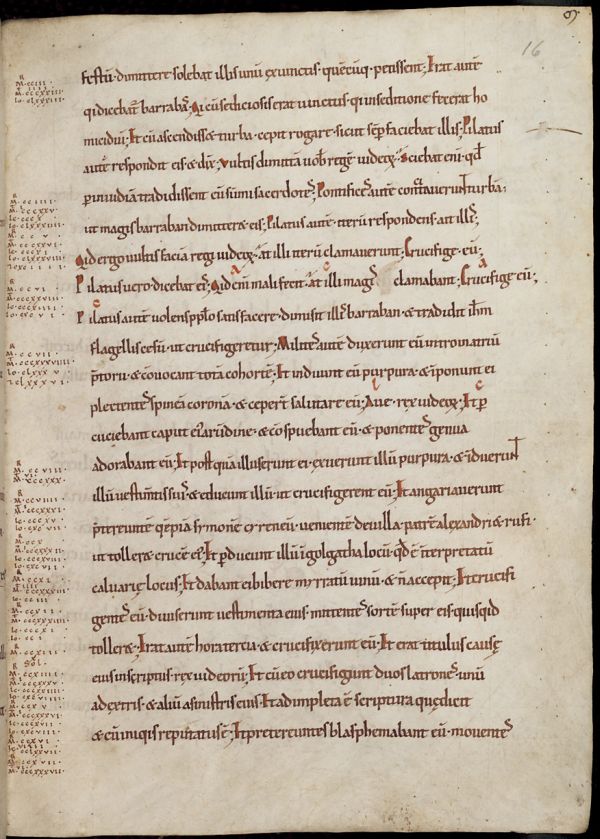 16
festū· dimittere solebat illis unū ex uinctis· quēcūq; petissent; Erat autē
qui dicebat̄ barrabā; Qui cū sediciosis erat uinctus· qui in seditione fecerat ho
micidiū; Et cū ascendisset turba· cepit rogare· sicut sēp faciebat illis; Pilatus
autē respondit eis & dix̄; Vultis dimittā uob̄ regē iudeoꝝ; Sciebat enī· qd̄
per inuidiā tradidissent eū sūmi sacerdotes; Pontifices autē concitauerunt turbā·
ut magis barraban dimitteret eis; Pilatus autē iterū respondens· ait illis;
Quid ergo uultis faciā regi iudeoꝝ; at illi iterū clamauerunt; Crucifige eū;
Pilatus uero dicebat eis; Quid enī mali fecit; at illi magis clamabant; Crucifige eū;
Pilatus autē uolens pp̄lo satisfacere· dimisit illis barraban· & tradidit ih̄m
flagellis cesū· ut crucifigeretur; Milites autē duxerunt eū intro atriū
p̄torii· & conuocant totā cohortē; Et induunt eū purpura· & īponunt ei
plectentes spineā coronā· & ceper̄t salutare eū; Aue rex iudeoꝝ; Et per
cuciebant caput eius arundine· & cōspuebant eū· & ponentes genua
adorabant eū; Et postquā illuserunt ei· exuerunt illū purpura· & īduerunt
illū uestimentis suis· & educunt illū· ut crucifigerent eū; Et angariauerunt
p̄tereuntē quēpiā symonē cyreneū· uenientē de uilla· patrē alexandri & rufi·
ut tolleret crucē eius; Et pducunt illū ī golgatha locū· qd̄ ē īterpretatū
caluarię locus; Et dabant ei bibere myrratū uinū· & n̄ accepit; Et crucifi
gentes eū· diuiserunt uestimenta eius· mittentes sortē super eis· quis quid
tolleret; Erat autē hora tercia· & crucifixerunt eū; Et erat titulus causę
eius inscriptus· rex iudeorū; Et cū eo crucifigunt duos latrones· unū
a dextris· & aliū a sinistris eius; Et adimpleta ē scriptura quę dicit
& cū iniquis reputatus ē; Et pretereuntes blasphemabant eū· mouentes